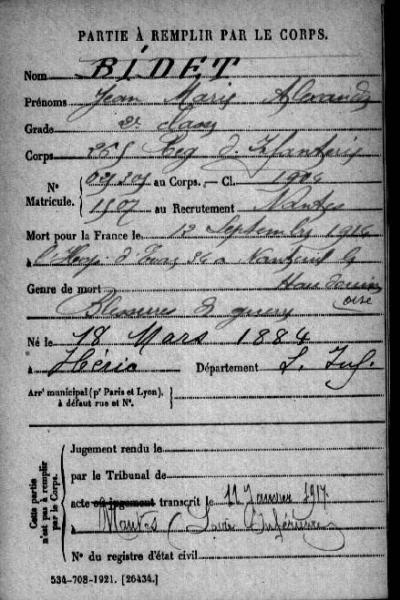 PARTIE À REMPLIR PAR LE CORPS.
Nom BIDET
Prénoms Jean Marie Alexandre
Grade 2e classe
Corps 265 Reg d'Infanterie
Nº Matricule. au Corps. — Cl. 1904
1507 au Recrutement Nantes
Mort pour la France le 12 Septembre 1914
à l'Hosp. d' Nanteuil le
Haudouin
Genre de mort oise
Blessures de guerre
Né le 18 Mars 1884
à Héric Département L. Inf.
Arrt municipal (pr Paris et Lyon), à défaut rue et Nº.
Cette partie n'est pas à remplir par le Corps.
Jugement rendu le
par le Tribunal de
acte ou jugement transcrit le 11 Janvier 1917
à Nantes (Loire Inférieure)
Nº du registre d'état civil
534-708-1921. [26434.]